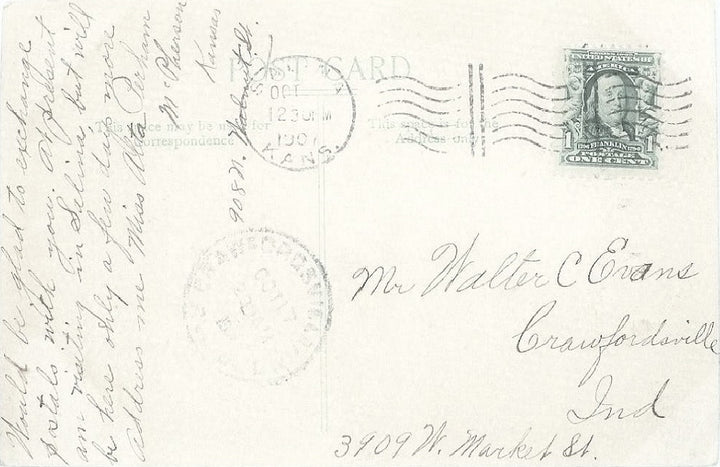 Would be glad to exchange
postals with you. At present
am visiting in Selina but will
be here only a few days more
address me Miss Alta Perham
McPherson
Kansas
908 N. Walnut St.
POST CARD
This space may be used for
Correspondence
This space is for the
Address only
OCT
12 30 PM
1907
KANS.
UNITED STATES OF
AMERICA
FRANKLIN
1 POSTAGE 1
ONE CENT
CRAWFORDSVILLE
OCT 17
Mr Walter C Evans
Crawfordsville
Ind
3909 W. Market St.